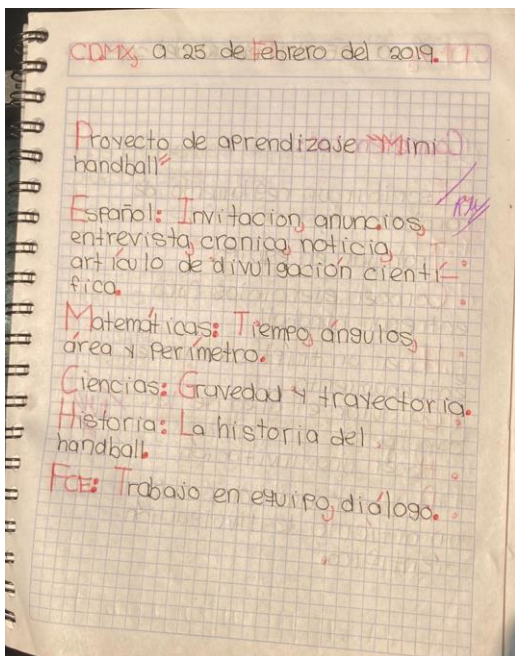 CDMX, a 25 de febrero del 2019.
Proyecto de aprendizaje "Mini
handball"
Español: Invitacion, anuncios,
entrevista, cronica, noticia,
artículo de divulgación cientí-
fica.
Matemáticas: Tiempo, ángulos,
área y perímetro.
Ciencias: Gravedad y trayectoria.
Historia: La historia del
handball.
FCE: Trabajo en equipo, diálogo.